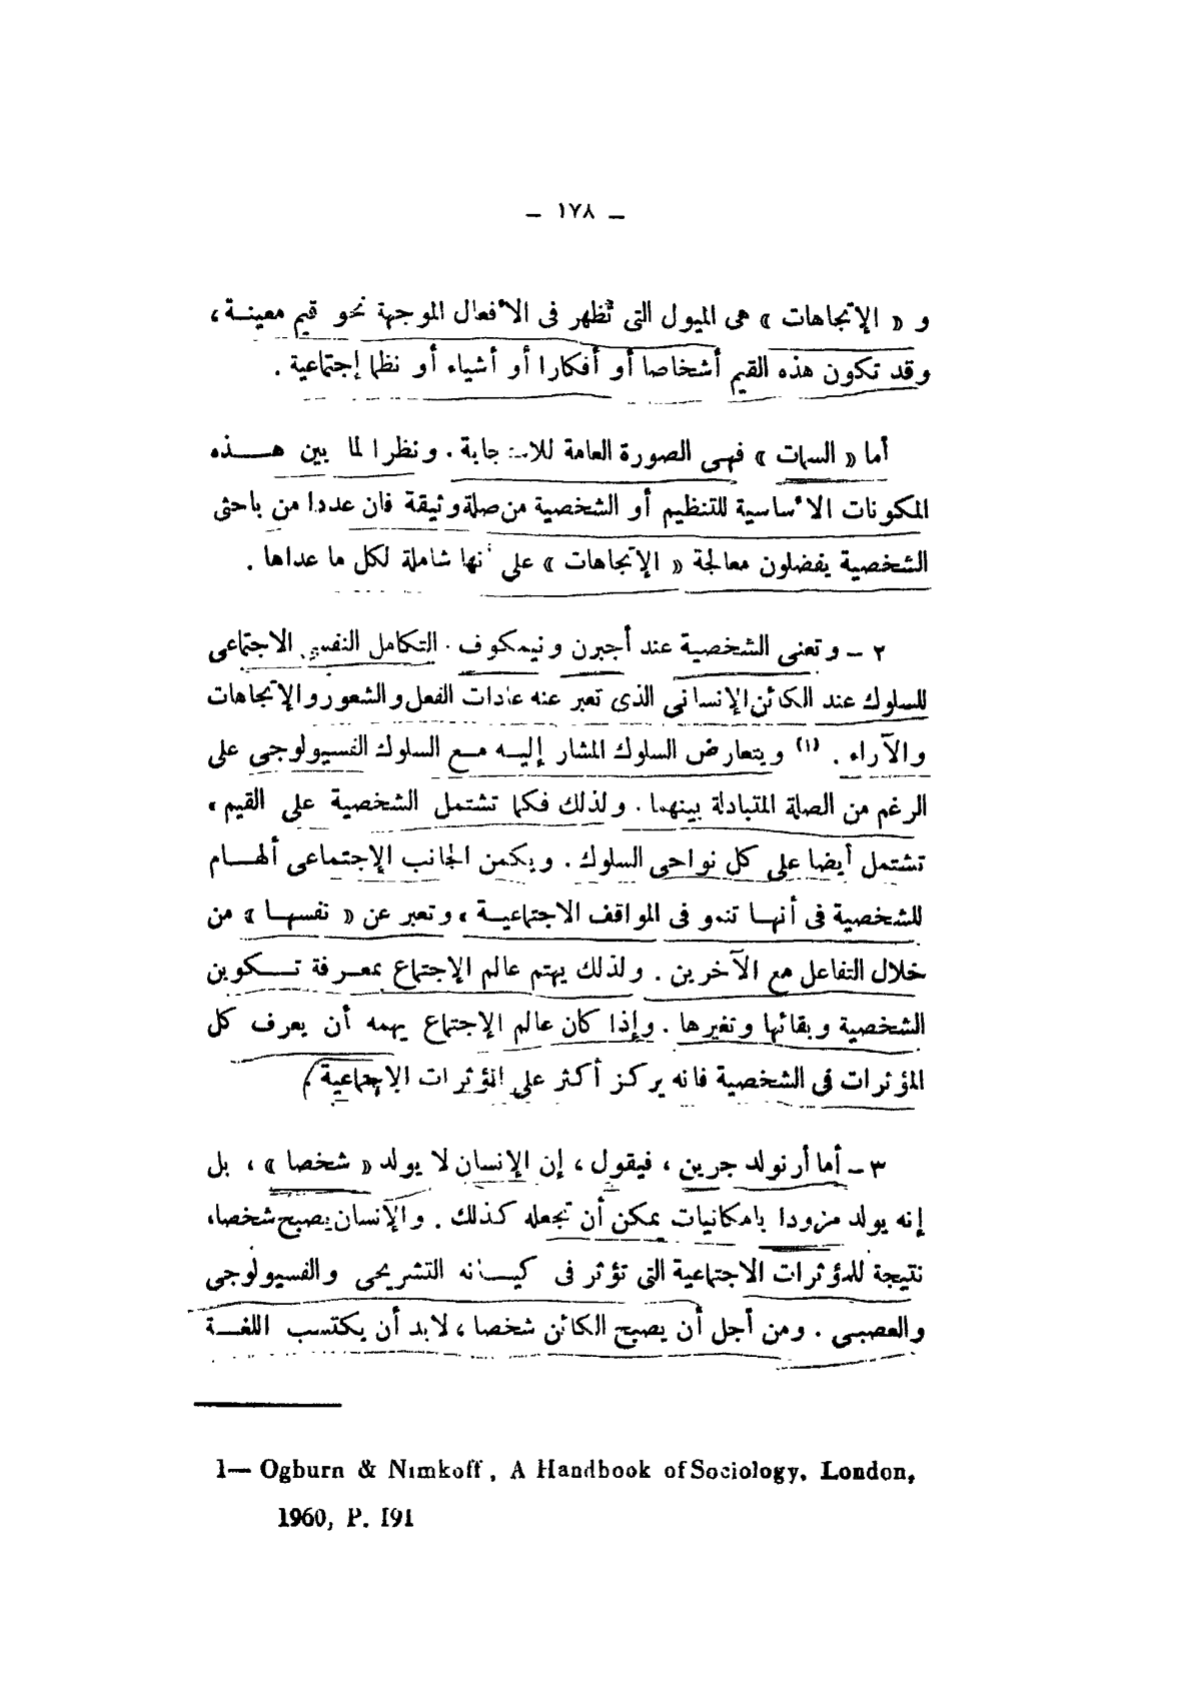 — ١٧٨ —
و « الإتجاهات » هى الميول التى تُظهر فى الأفعال الموجهة نحو قيم معينــة ،
وقد تكون هذه القيم أشخاصا أو أفكارا أو أشياء أو نظما إجتماعية .
أما « السمات » فهى الصورة العامة للاستجابة . ونظرا لما بين هــــذه
المكونات الأساسية للتنظيم أو الشخصية من صلة وثيقة فان عددا من باحثى
الشخصية يفضلون معالجة « الإتجاهات » على أنها شاملة لكل ما عداها .
٢ — وتعنى الشخصية عند أجبرن ونيمكوف . التكامل النفسى الاجتماعى
للسلوك عند الكائن الإنسانى الذى تعبر عنه عادات الفعل والشعور والإتجاهات
والآراء . (١) ويتعارض السلوك المشار إليـه مـع السلوك الفسيولوجى على
الرغم من الصلة المتبادلة بينهما . ولذلك فكما تشتمل الشخصية على القيم ،
تشتمل أيضا على كل نواحى السلوك . ويكمن الجانب الإجتماعى ألهــام
للشخصية فى أنهــا تنمو فى المواقف الاجتماعيــة ، وتعبر عن « نفسهــا » من
خلال التفاعل مع الآخرين . ولذلك يهتم عالم الإجتماع بمعـرفة تــكوين
الشخصية وبقائها وتغيرها . وإذا كان عالم الإجتماع يهمه أن يعرف كل
المؤثرات فى الشخصية فانه يركز أكثر على المؤثرات الإجتماعية .
٣ — أما أرنولد جرين ، فيقول ، إن الإنسان لا يولد « شخصا » ، بل
إنه يولد مزودا بامكانيات يمكن أن تجعله كذلك . والإنسان يصبح شخصا،
نتيجة للمؤثرات الاجتماعية التى تؤثر فى كيــانه التشريحى والفسيولوجى
والعصبى . ومن أجل أن يصبح الكائن شخصا ، لابد أن يكتسب اللغــة
1— Ogburn & Nimkoff, A Handbook of Sociology, London,
1960, P. 191